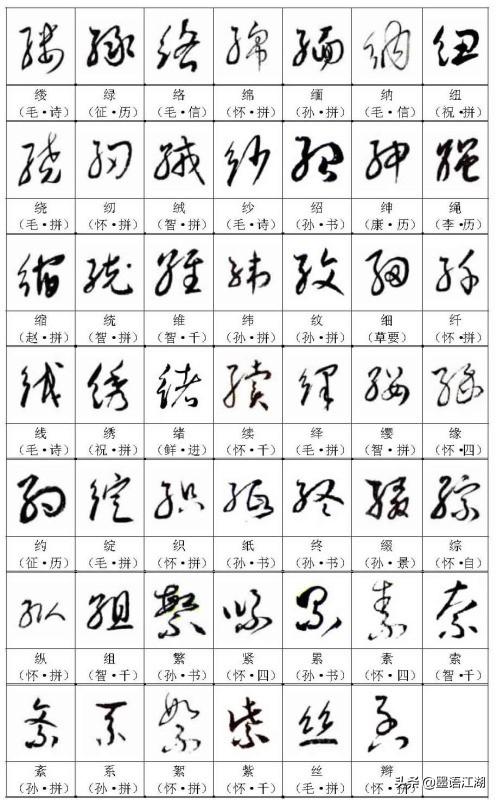 缕 绿 络 绵 缅 纳 纽
（毛·诗） （征·历） （毛·信） （怀·拼） （孙·拼） （毛·信） （祝·拼）
绕 纫 绒 纱 绍 绅 绳
（毛·拼） （怀·拼） （智·拼） （毛·诗） （孙·书） （康·历） （李·历）
缩 统 维 纬 纹 细 纤
（赵·拼） （智·拼） （智·千） （孙·拼） （孙·拼） （草要） （怀·拼）
线 绣 绪 续 绎 缨 缘
（毛·诗） （祝·拼） （鲜·进） （怀·千） （毛·拼） （智·拼） （怀·四）
约 绽 织 纸 终 缀 综
（征·历） （毛·拼） （怀·拼） （孙·书） （孙·书） （孙·景） （怀·自）
纵 组 繁 紧 累 素 索
（怀·拼） （智·千） （孙·书） （怀·四） （孙·书） （怀·四） （智·千）
紊 系 絮 紫 丝 辫
（孙·拼） （孙·拼） （孙·书） （怀·千） （毛·拼） （怀·拼）
头条 @墨语江湖